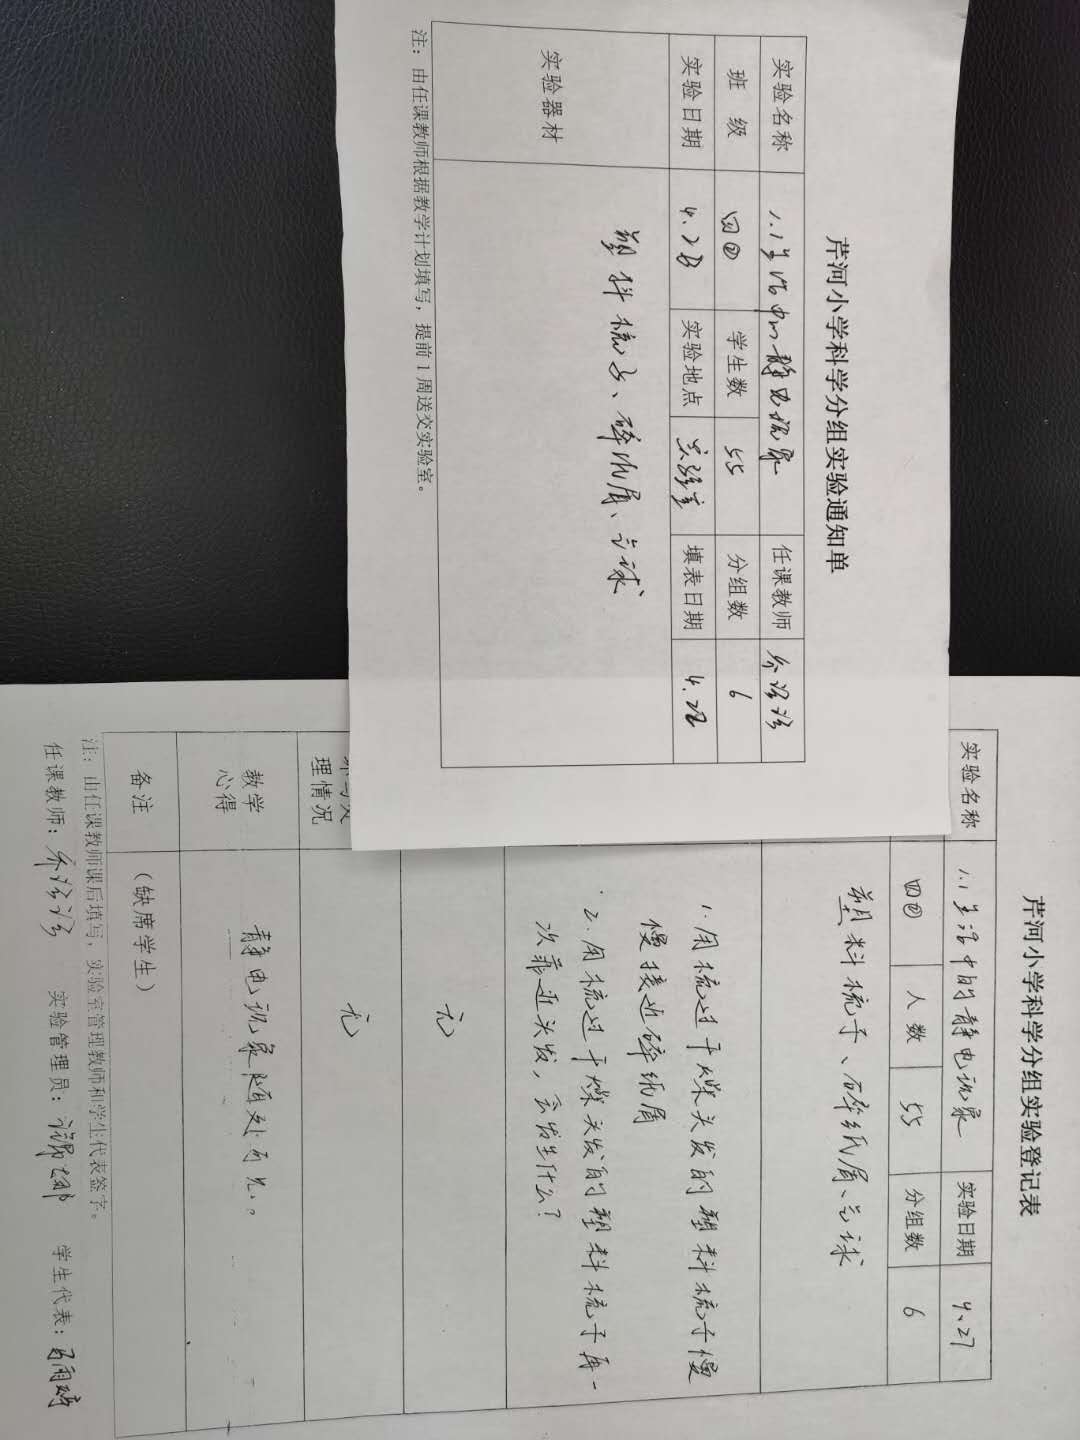 芹河小学科学分组实验通知单
实验名称 1.1生活中的静电现象 任课教师
班 级 四② 学生数 55 分组数 6
实验日期 4.28 实验地点 实验室 填表日期 4.22
实验器材 塑料梳子、碎纸屑、气球
注：由任课教师根据教学计划填写，提前1周送交实验室。
芹河小学科学分组实验登记表
实验名称 1.1生活中的静电现象 实验日期 4.27
四② 人数 55 分组数 6
塑料梳子、碎纸屑、气球
1.用梳过干燥头发的塑料梳子慢
慢接近碎纸屑
2.用梳过干燥头发的塑料梳子再一
次靠近头发，会发生什么？
无
理情况 无
教学
心得 静电现象随处可见。
备注 （缺席学生）
注：由任课教师课后填写，实验室管理教师和学生代表签字。
任课教师： 实验管理员： 学生代表：